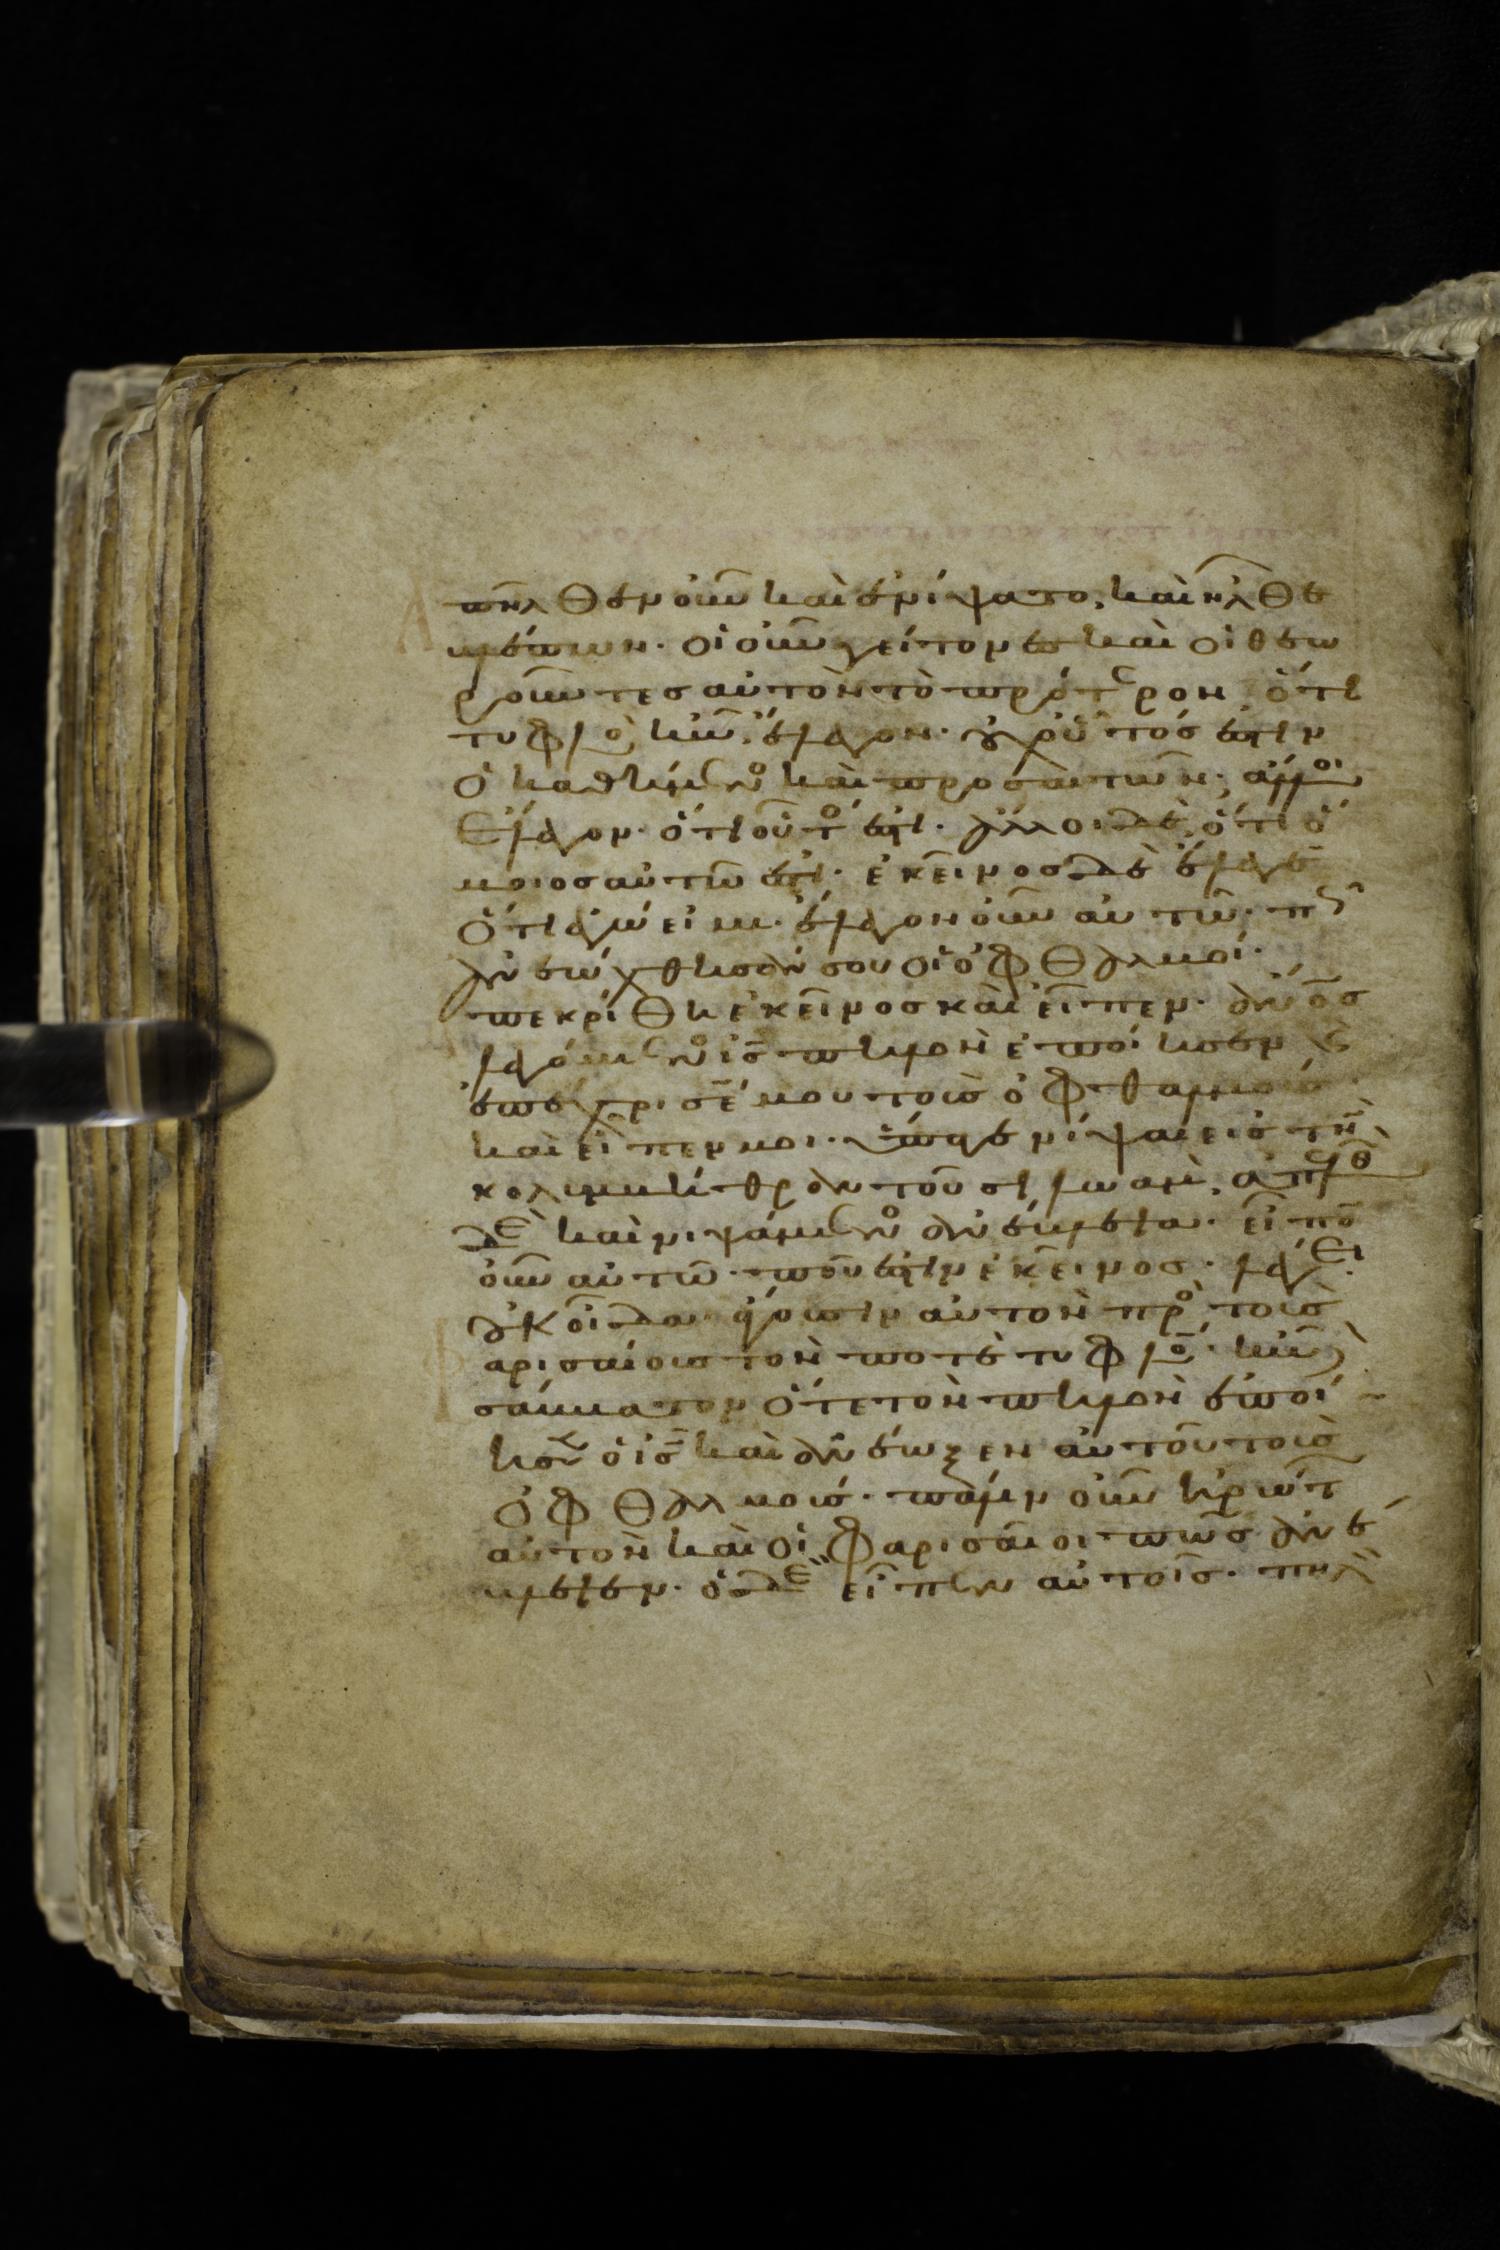 Ἀπῆλθεν οὖν καὶ ἐνίψατο, καὶ ἦλθε
βλέπων. οἱ οὖν γείτονες καὶ οἱ θεω
ροῦντες αὐτὸν τὸ πρότερον ὅτι
τυφλὸς ἦν, ἔλεγον. οὐχ οὗτός ἐστιν
ὁ καθήμενος καὶ προσαιτῶν; ἄλλοι
ἔλεγον. ὅτι οὗτός ἐστι. ἄλλοι δὲ, ὅτι ὅ
μοιος αὐτῶ ἐστι. ἐκεῖνος δὲ ἔλεγεν
ὅτι ἐγώ εἰμι. ἔλεγον οὖν αὐτῶ. πῶς
ἀνεώχθησάν σου οἱ ὀφθαλμοί.
ἀπεκρίθη ἐκεῖνος καὶ εἶπεν. ἄνος
λεγόμενος ις πηλὸν ἐποίησεν κὲ
ἐπέχρισέ μου τοὺς ὀφθαλμούς.
καὶ εἶπέν μοι. ὕπαγε νίψαι εἰς τὴν
κολυμβήθραν τοῦ σιλωάμ, ἀπελθὼν
δὲ καὶ νιψάμενος ἀνέβλεψα. εἶπον
οὖν αὐτῶ. ποῦ ἐστιν ἐκεῖνος. λέγει.
οὐκ οἶδα. ἄγουσιν αὐτὸν πρὸς τοὺς
Φαρισαίους τὸν ποτὲ τυφλόν. ἦν δὲ
σάββατον ὅτε τὸν πηλὸν ἐποί
ησεν ὁ ις καὶ ἀνέωξεν αὐτοῦ τοὺς
ὀφθαλμούς. πάλιν οὖν ἠρώτων
αὐτὸν καὶ οἱ Φαρισαῖοι πῶς ἀνέ
βλεψεν. ὁ δὲ εἶπεν αὐτοῖς. πηλὸν